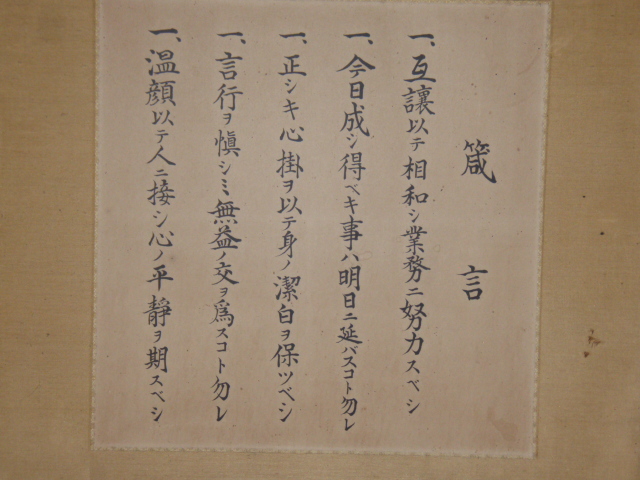 箴言
一、互譲以テ相和シ業務ニ努力スベシ
一、今日成シ得ベキ事ハ明日ニ延バスコト勿レ
一、正シキ心掛ヲ以テ身ノ潔白ヲ保ツベシ
一、言行ヲ慎シミ無益ノ交ヲ為スコト勿レ
一、温顔以テ人ニ接シ心ノ平静ヲ期スベシ